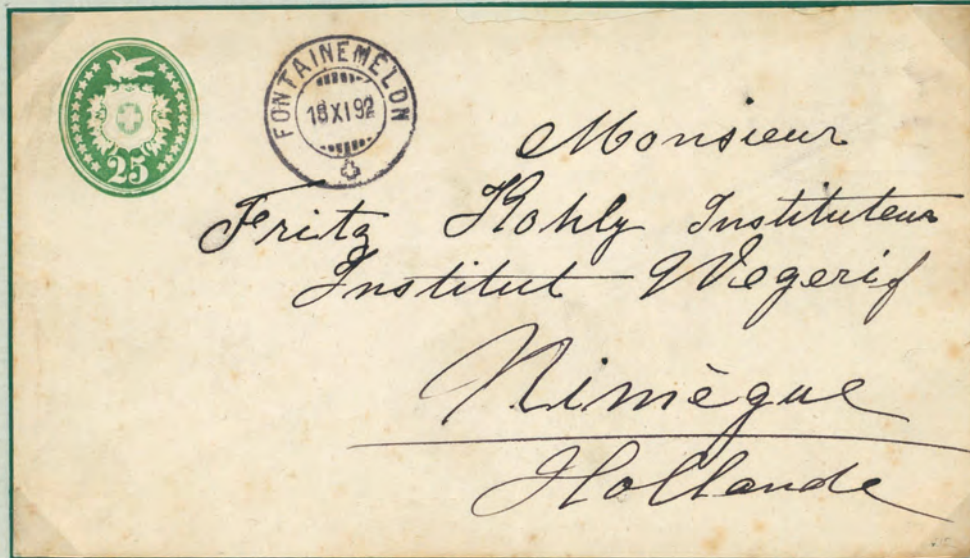 25
FONTAINEMELON
18 XI 92
Monsieur
Fritz Kohly Instituteur
Institut Wegerif
Nimègue
Hollande